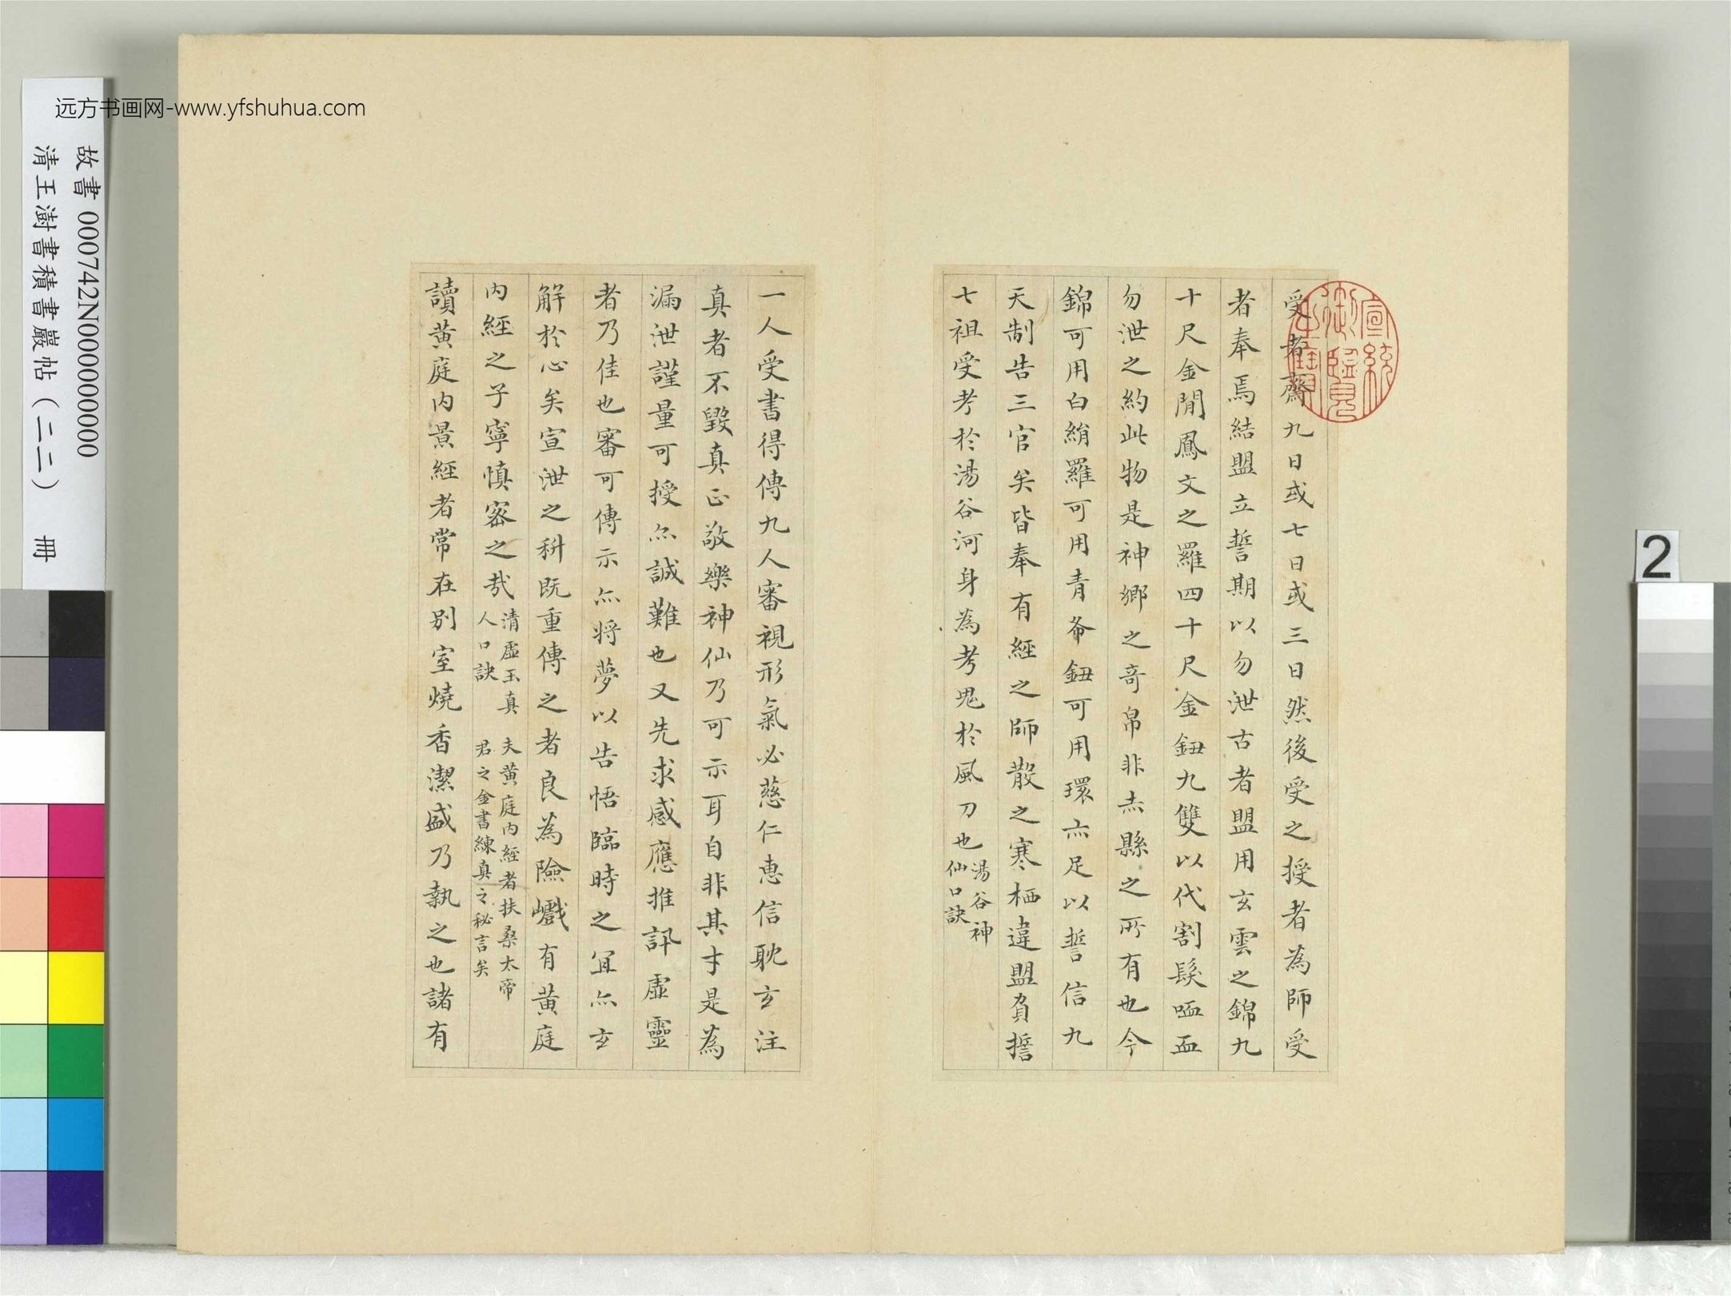 远方书画网-www.yfshuhua.com
故書 000742N000000000
清王澍書積書巖帖（二二） 冊
2
宣統御覽之寶
受者齋九日或七日或三日然後受之授者為師受
者奉焉結盟立誓期以勿泄古者盟用玄雲之錦九
十尺金閒鳳文之羅四十尺金鈕九雙以代割髮歃血
勿泄之約此物是神鄉之奇帛非赤縣之所有也今
錦可用白絹羅可用青布鈕可用環亦足以誓信九
天制告三官矣皆奉有經之師散之寒栖違盟負擔
七祖受考於湯谷河身為考鬼於風刀也湯谷神仙口訣
一人受書得傳九人審視形氣必慈仁惠信耽玄注
真者不毀真正敬樂神仙乃可示耳自非其才是為
漏泄謹量可授尔誠難也又先求感應推訊虛靈
者乃佳也審可傳示尔將夢以告悟臨時之宜尔玄
解於心矣宣泄之科既重傳之者良為險巇有黃庭
內經之子寧慎密之哉清虛玉真人口訣 夫黃庭內經者扶桑太帝君之金書練真之秘言矣
讀黃庭內景經者常在別室燒香潔盛乃執之也諸有